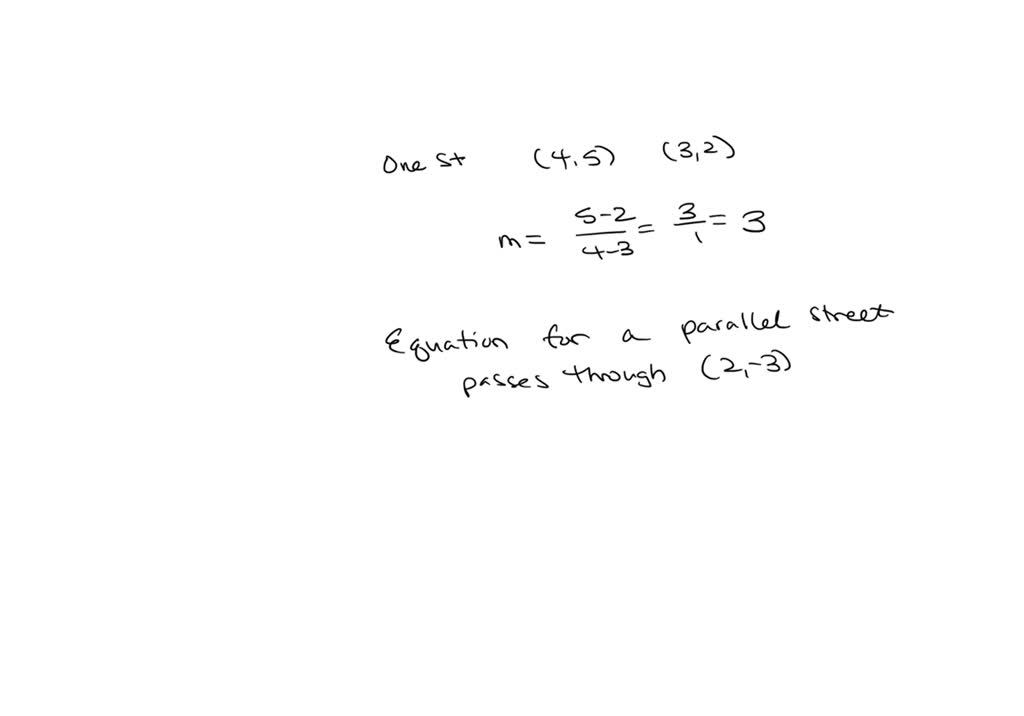 One St (4,5) (3,2)
m = 5-2/4-3 = 3/1 = 3
Equation for a parallel street
passes through (2,-3)